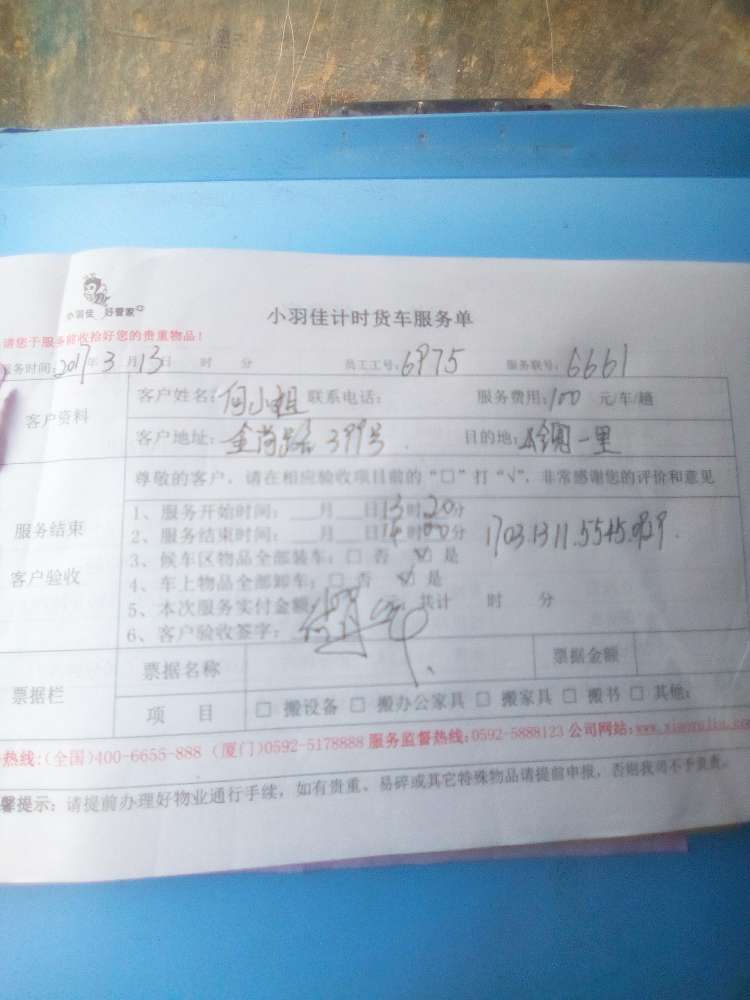 小羽佳 好管家
小羽佳计时货车服务单
请您于服务前收拾好您的贵重物品！
服务时间：2017年3月13日 时 分 员工工号：6975 服务联号：6661
客户资料
客户姓名：何小姐 联系电话： 服务费用：100 元/车/趟
客户地址：金尚路399号 目的地： 一里
尊敬的客户，请在相应验收项目前的“□”打“√”，非常感谢您的评价和意见
服务结束
客户验收
1、服务开始时间： 月 日13时20分
2、服务结束时间： 月 日14时00分
1703.1311.5545.929
3、候车区物品全部装车：□ 否 ☑ 是
4、车上物品全部卸车：□ 否 ☑ 是
5、本次服务实付金额 元，共计 时 分
6、客户验收签字：
票据栏
票据名称 票据金额
项 目 □ 搬设备 □ 搬办公家具 □ 搬家具 □ 搬书 □ 其他：
热线：(全国)400-6655-888 (厦门)0592-5178888 服务监督热线：0592-5888123 公司网站：
馨提示：请提前办理好物业通行手续，如有贵重、易碎或其它特殊物品请提前申报，否则我司不予负责。